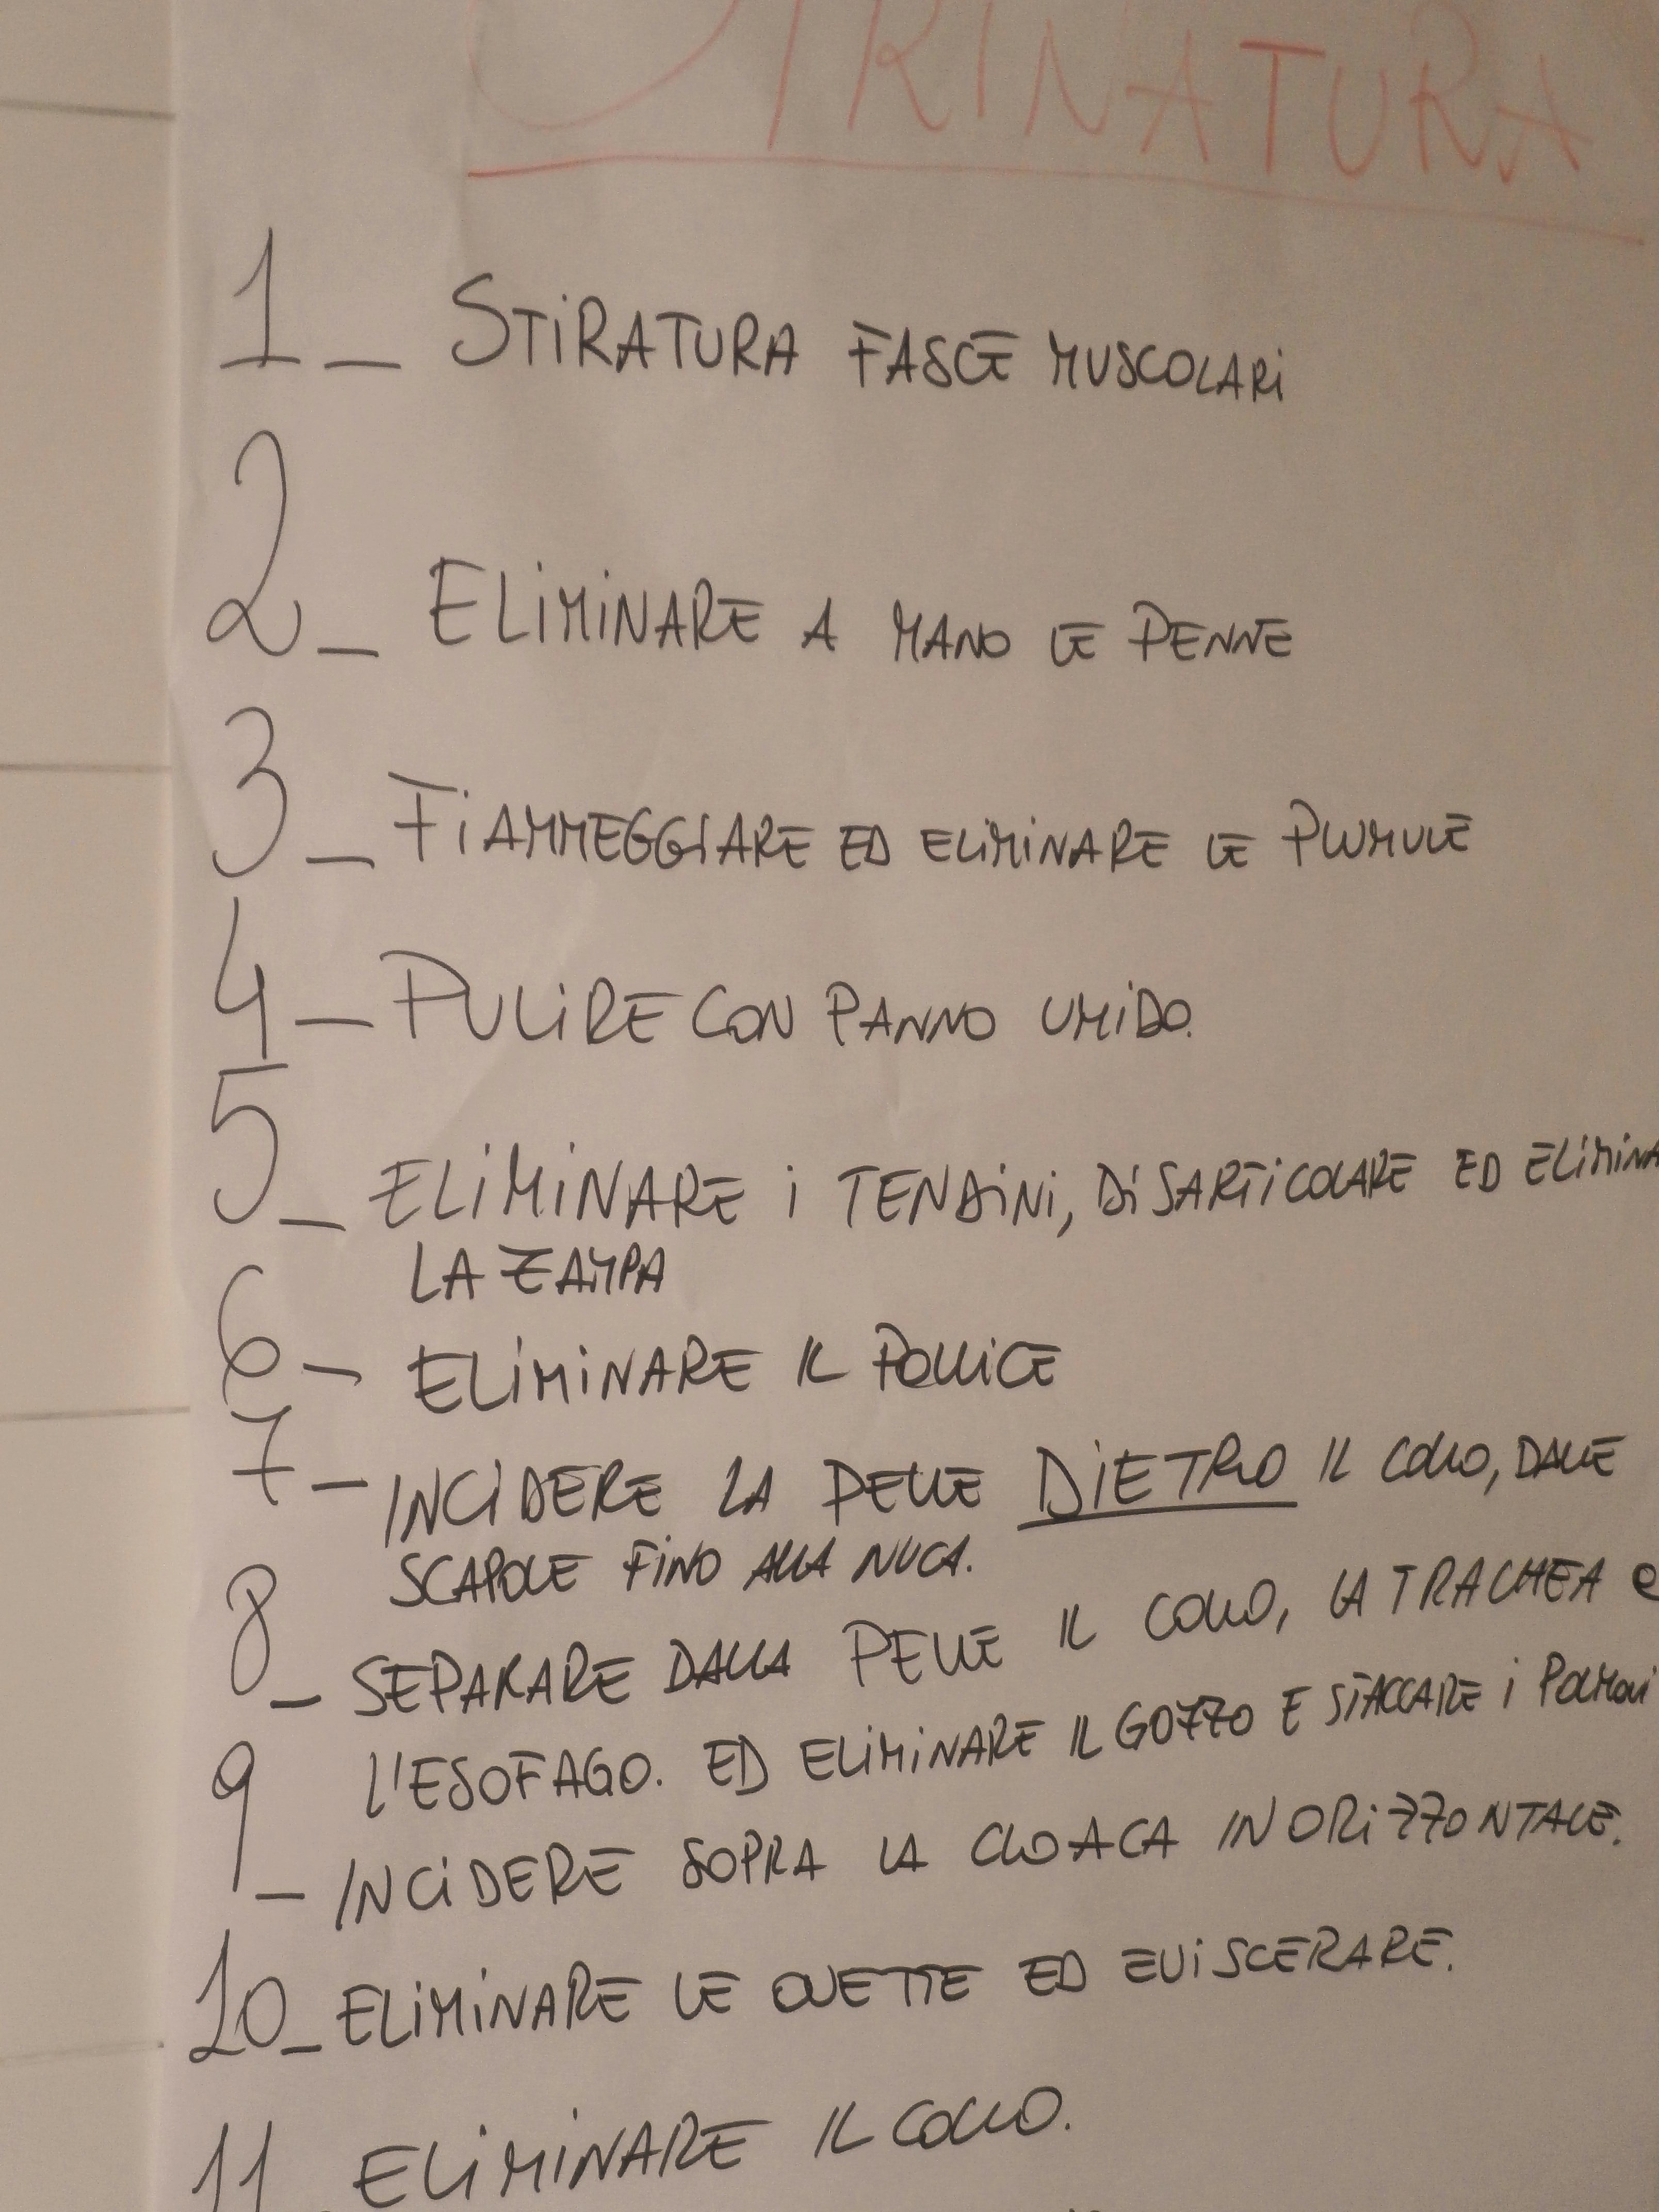 STRINATURA
1_ STIRATURA FASCE MUSCOLARI
2_ ELIMINARE A MANO LE PENNE
3_ FIAMMEGGIARE ED ELIMINARE LE PIUMULE
4_ PULIRE CON PANNO UMIDO.
5_ ELIMINARE I TENDINI, DISARTICOLARE ED ELIMINA
LA ZAMPA
6_ ELIMINARE IL POLLICE
7_ INCIDERE LA PELLE DIETRO IL COLLO, DALLE
SCAPOLE FINO ALLA NUCA.
8_ SEPARARE DALLA PELLE IL COLLO, LA TRACHEA e
L'ESOFAGO. ED ELIMINARE IL GOZZO E STACCARE I POLMONI
9_ INCIDERE SOPRA LA CLOACA IN ORIZZONTALE.
10_ ELIMINARE LE OVETTE ED EVISCERARE.
11_ ELIMINARE IL COLLO.